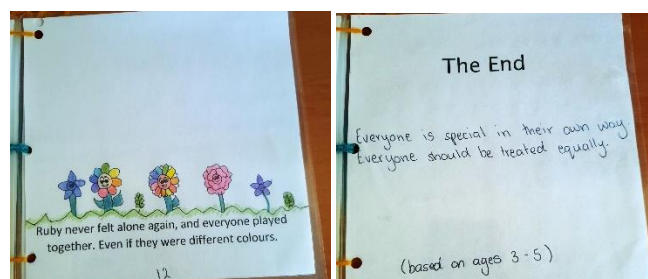 Ruby never felt alone again, and everyone played
together. Even if they were different colours.
12
The End
Everyone is special in their own way.
Everyone should be treated equally.
(based on ages 3-5)